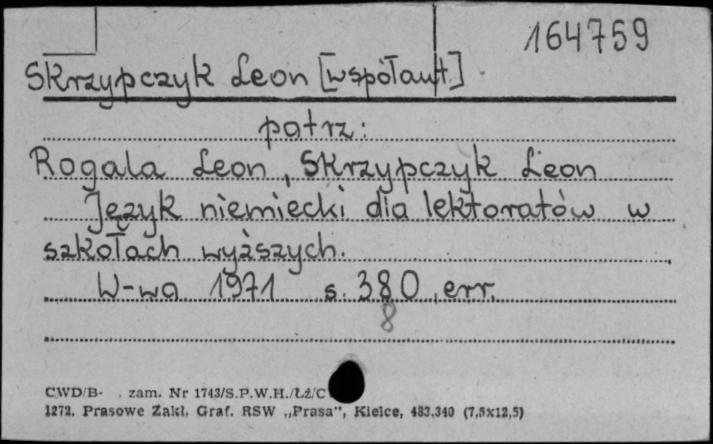 164759
Skrzypczyk Leon [współaut.]
patrz:
Rogala Leon, Skrzypczyk Leon
Język niemiecki dla lektoratów w
szkołach wyższych.
W-wa 1971 s. 380, err.
8
CWD/B- . zam. Nr 1743/S.P.W.H./Łż/C
1272. Prasowe Zakł. Graf. RSW „Prasa”, Kielce, 483.340 (7,5x12,5)